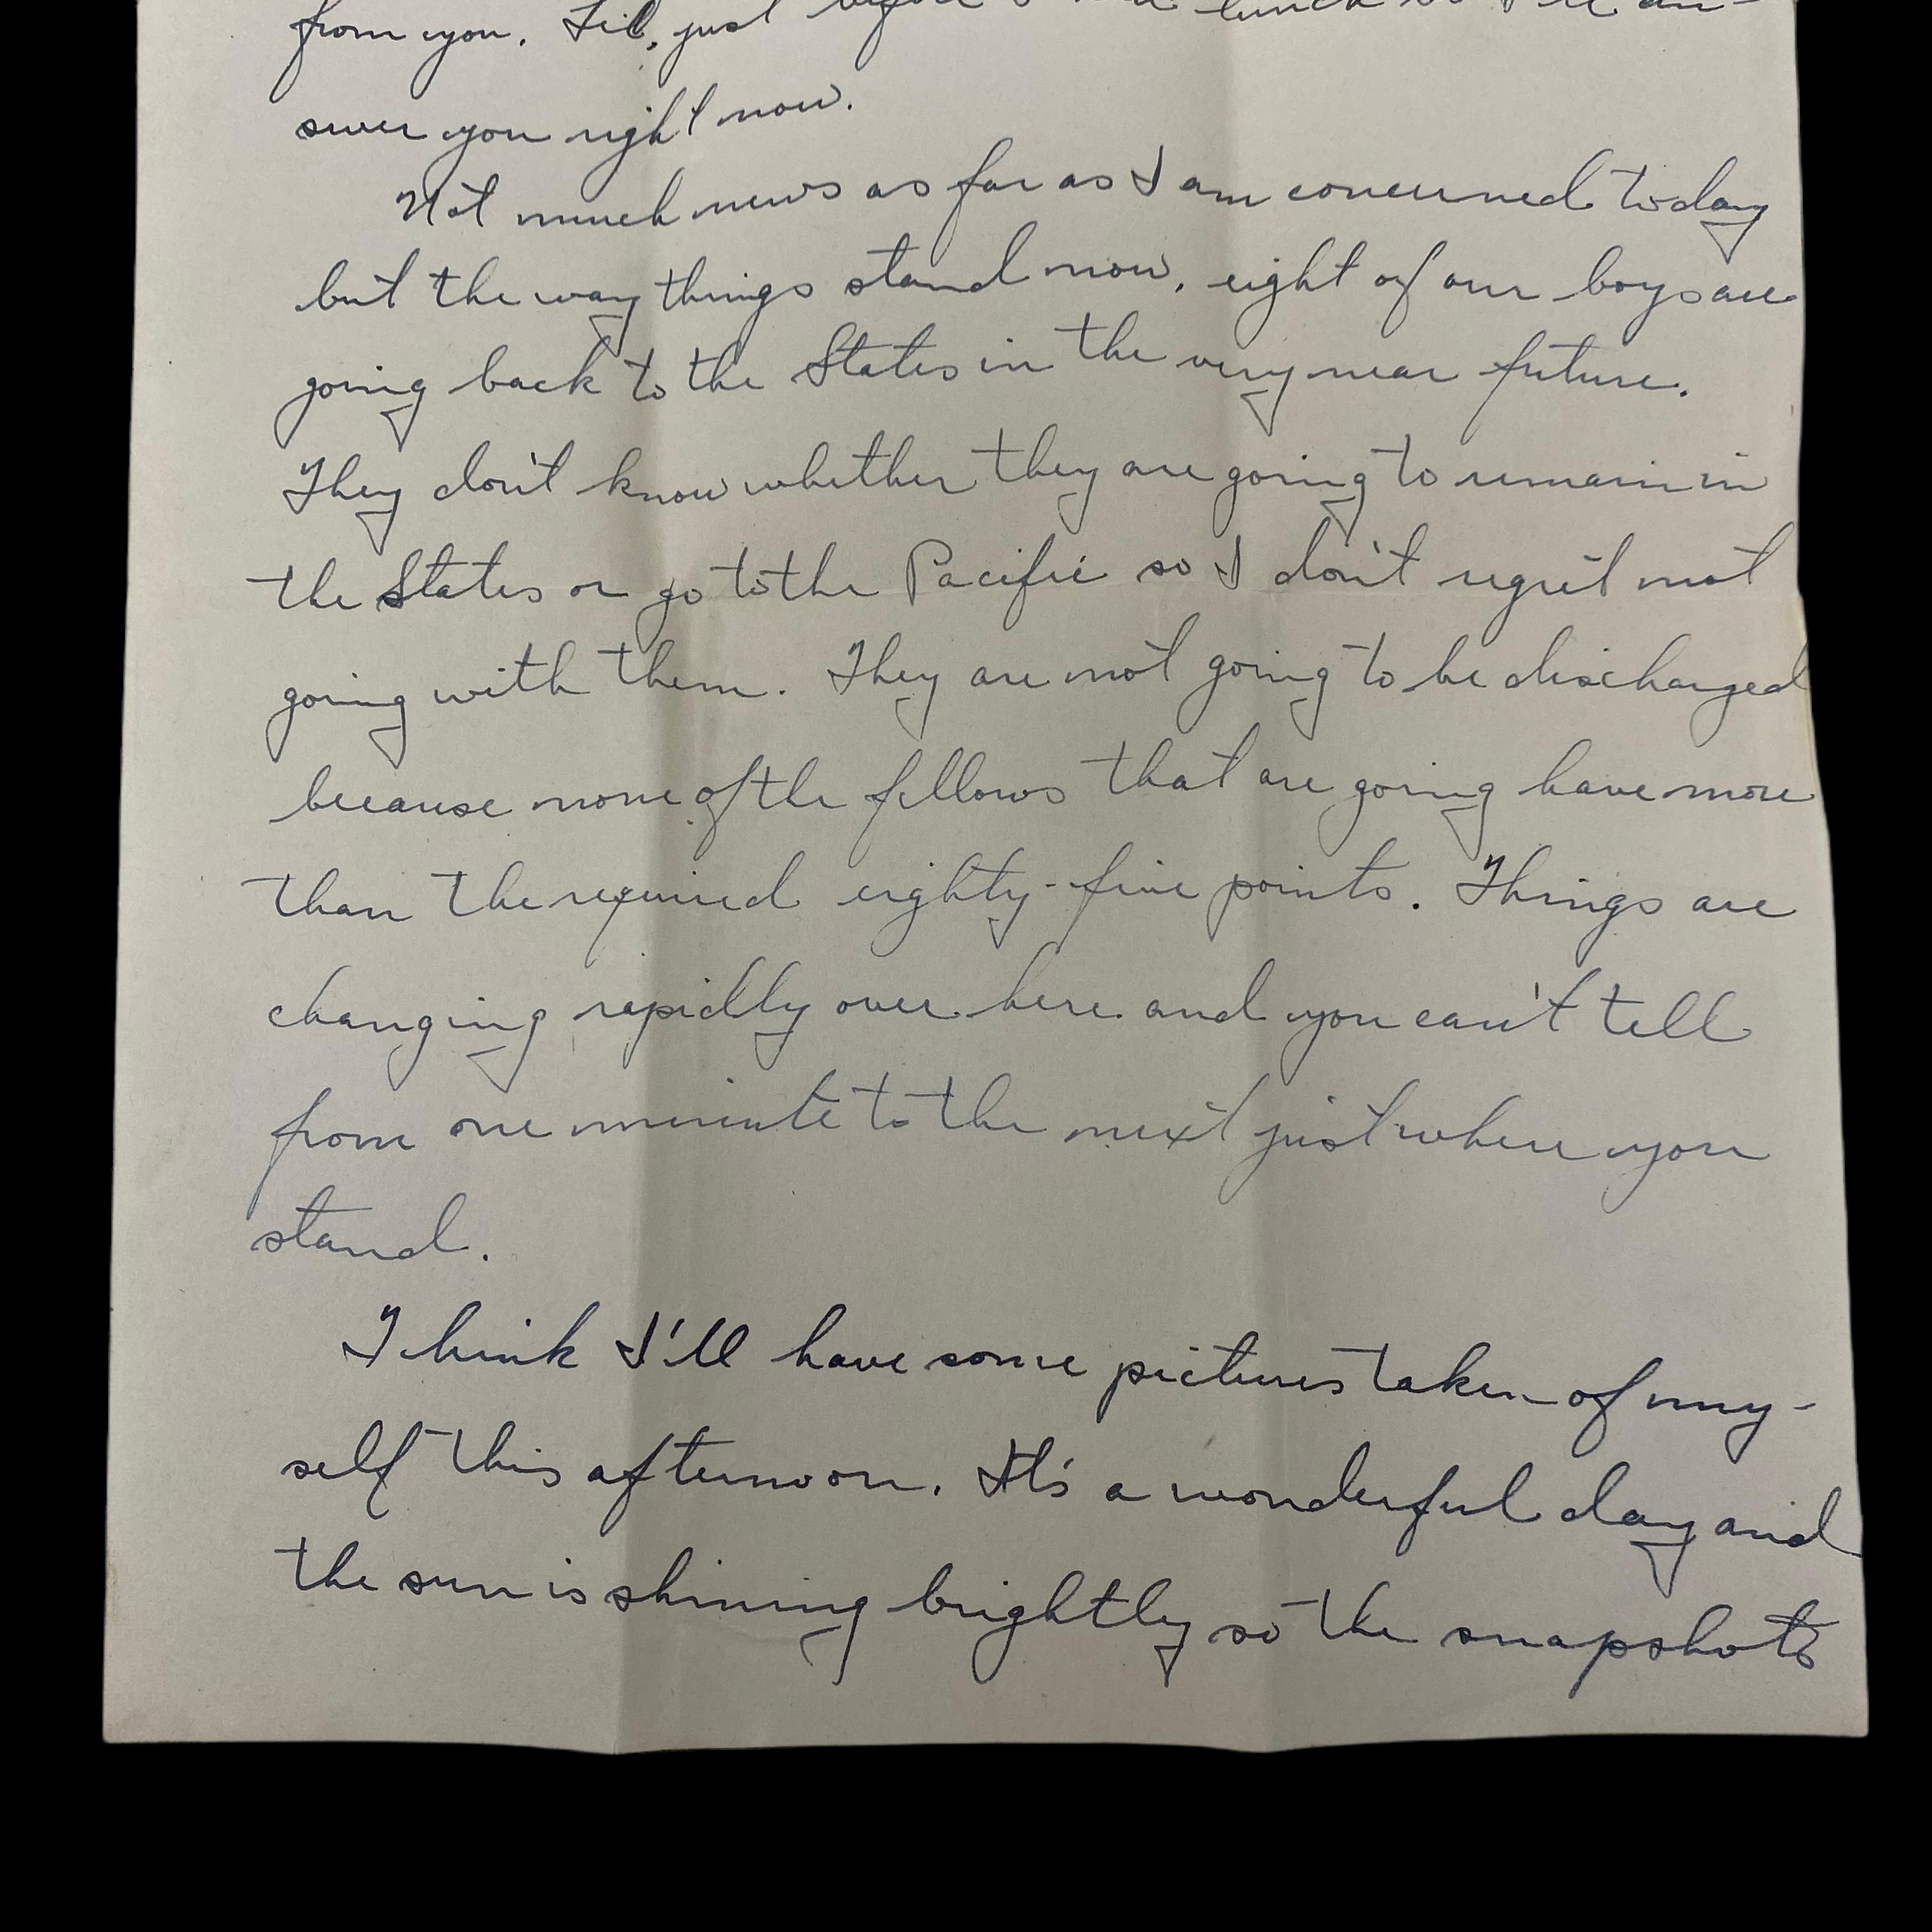 from you, Lil, just before I had lunch so I'll an-
swer you right now.
Not much news as far as I am concerned today
but the way things stand now, eight of our boys are
going back to the States in the very near future.
They don't know whether they are going to remain in
the States or go to the Pacific so I don't regret not
going with them. They are not going to be discharged
because none of the fellows that are going have more
than the required eighty-five points. Things are
changing rapidly over here and you can't tell
from one minute to the next just where you
stand.
Think I'll have some pictures taken of my-
self this afternoon. It's a wonderful day and
the sun is shining brightly so the snapshots